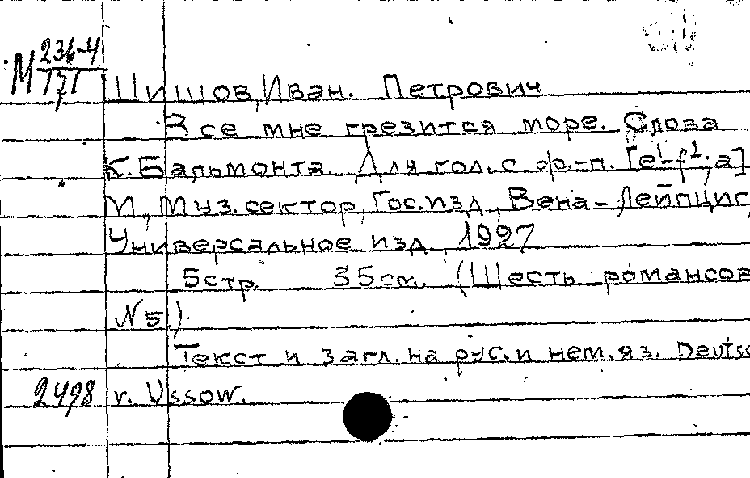 М 236-4
171
Шишов, Иван. Петрович
Все мне грезится море. Слова
К. Бальмонта. Для гол. с ф.-п. [e¹-f²; a]
М., Муз. сектор, Гос. изд., Вена-Лейпциг,
Универсальное изд. 1927
5 стр. 35 см. (Шесть романсов
N 5.)
Текст и загл. на рус. и нем. яз. Deutsc
2498 v. Ussow.